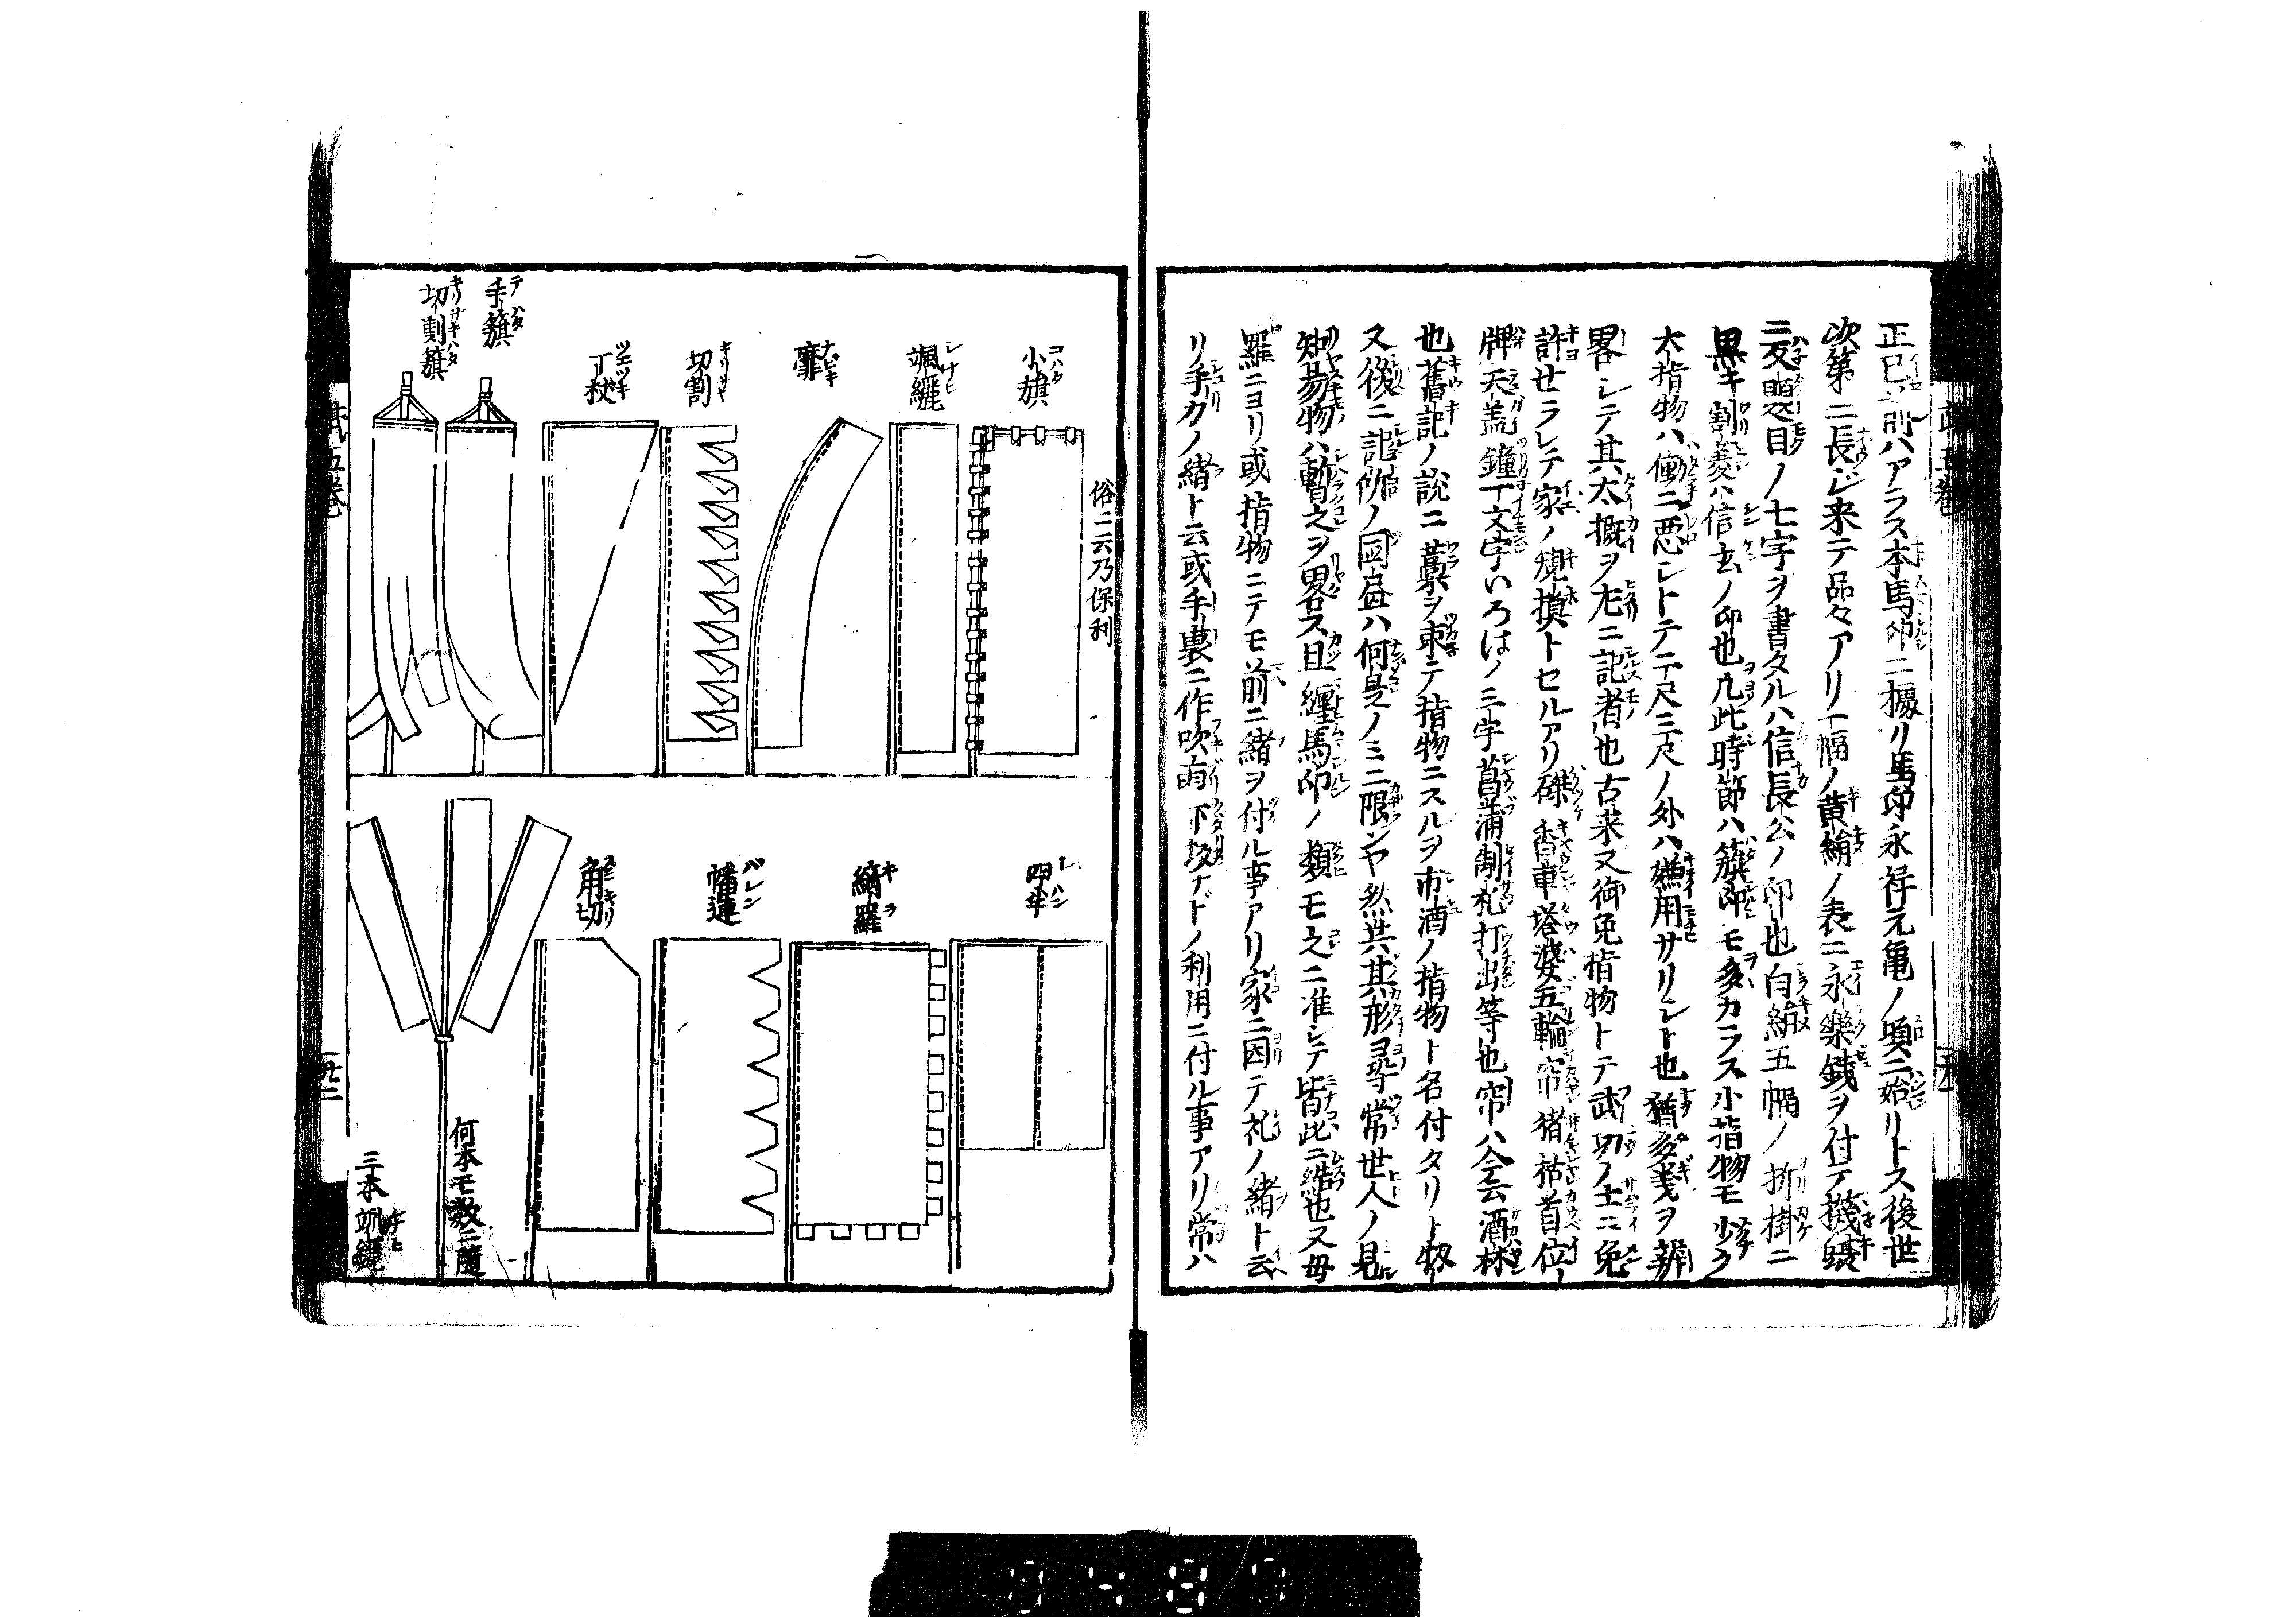 正巳前ハアラス本馬印ニ據リ馬印永祿元亀ノ頃ニ始リトス後世
次第ニ長シ来テ品々アリ一幅ノ黄絹ノ表ニ永樂錢ヲ付テ撥頭
ニ題目ノ七字ヲ書タルハ信長公ノ印也白絹五幅ノ折掛ニ
黒キ割菱ハ信玄ノ印也凡此時節ハ籏印モ多カラス小指物モ少ク
大指物ハ働ニ悪シトテ二尺三尺ノ外ハ用サリシト也猶多義ヲ辨
畧シテ其大概ヲ左ニ記者也古来又御免指物トテ武功ノ士ニ免
許せラレテ家ノ規摸トセルアリ磔香車塔婆五輪帘猪枯首位ー
牌天盖鐘丁文字いろはノ三字菖蒲制札打出等也帘ハ今云酒林
也舊記ノ説ニ藁ヲ束テ指物ニスルヲ市酒ノ指物ト名付タリト
又後ニ記所ノ圖盡ハ何是ノミニ限ンヤ然共其形尋常世人ノ見
知易物ハ暫之ヲ畧ス且纏馬印ノ類モ之ニ准シテ皆此ニ也又母
羅ニヨリ或指物ニテモ前ニ緒ヲ付ル事アリ家ニ因テ礼ノ緒ト云
リ手力ノ緒ト云或手裏ニ作吹雨下坂ナドノ利用ニ付ル事アリ常ハ
俗ニ云乃保利
小旗
コハタ
颯纚
シナヒ
靡
ナビキ
切割
キリサキ
丁杖
ツエツキ
手籏
テバタ
切割籏
キリサキハタ
四半
シハン
縞羅
キヲ
幡連
バレン
角切
スミキリ
何本モ数ニ隨
三本颯纚
シナヒ
武五巻